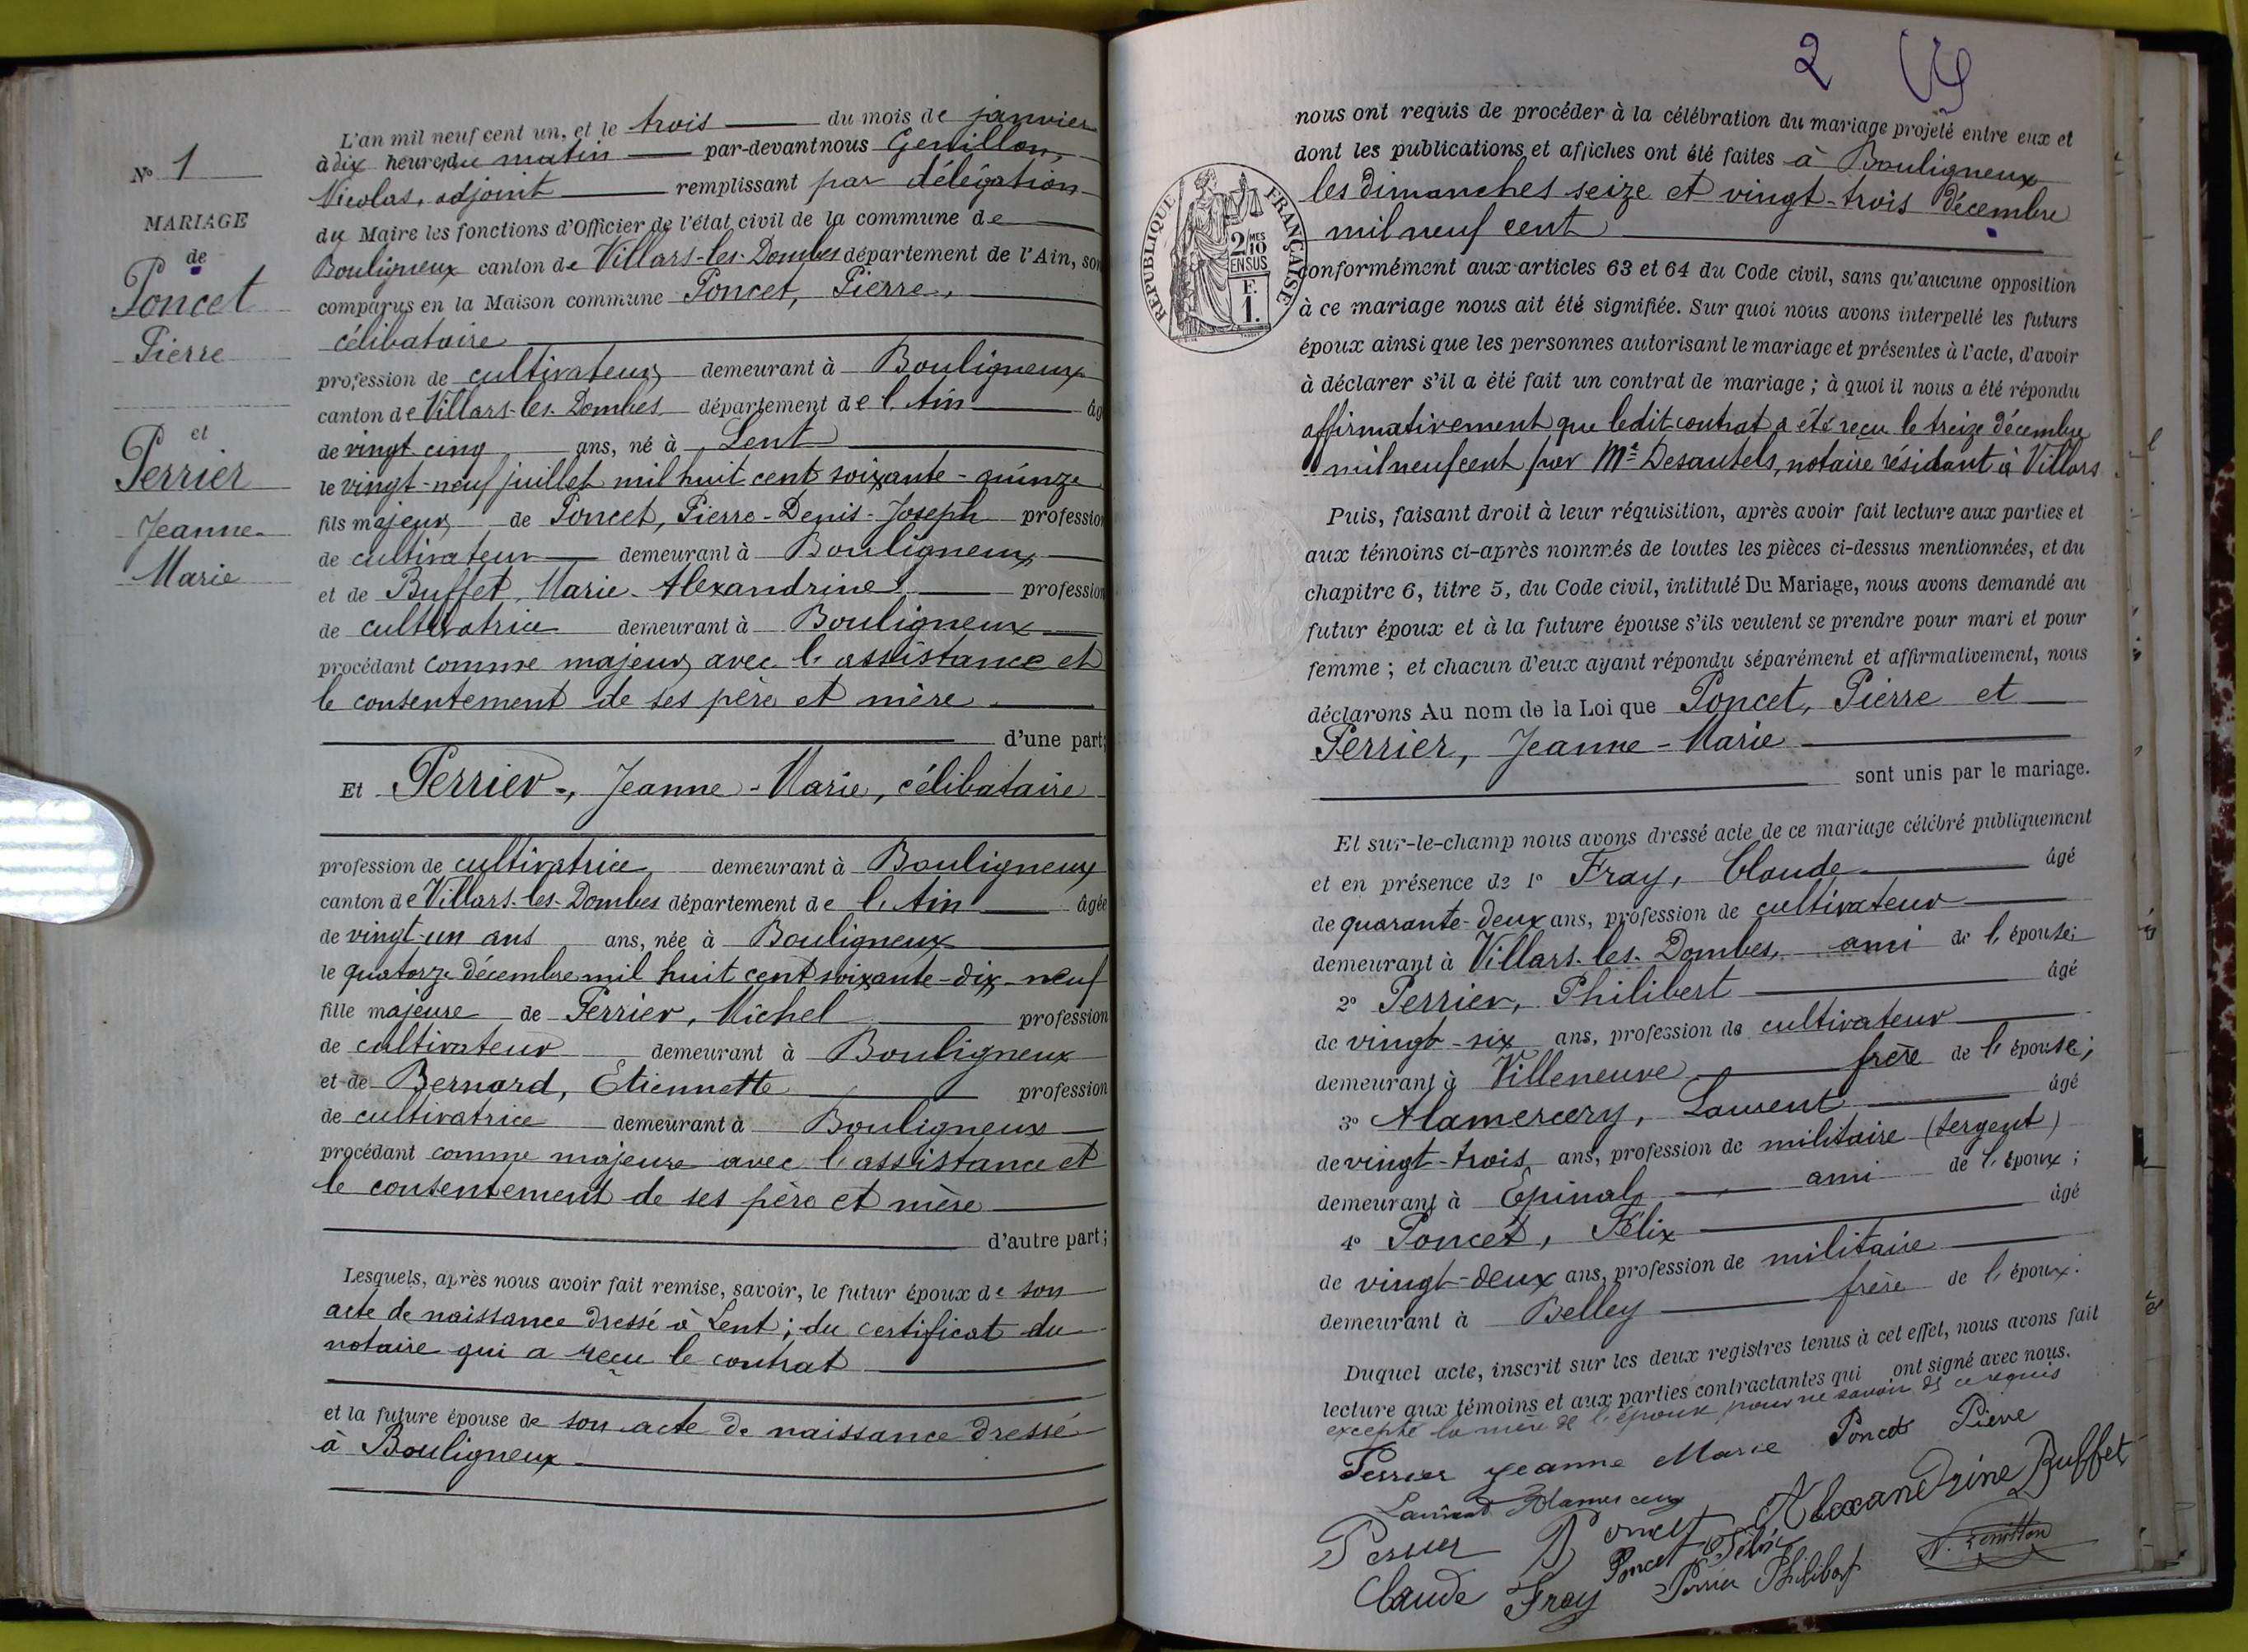 N° 1
MARIAGE
de
Poncet
Pierre
et
Perrier
Jeanne-
Marie
L'an mil neuf cent un, et le trois du mois de janvier
à dix heures du matin par-devant nous Genillon,
Nicolas, adjoint remplissant par délégation
du Maire les fonctions d'Officier de l'état civil de la commune de
Bouligneux canton de Villars-les-Dombes département de l'Ain, son
comparus en la Maison commune Poncet, Pierre,
célibataire
profession de cultivateur demeurant à Bouligneux
canton de Villars-les-Dombes département de l'Ain âg
de vingt cinq ans, né à Lent
le vingt-neuf juillet mil huit cent soixante-quinze
fils majeur de Poncet, Pierre-Denis-Joseph profession
de cultivateur demeurant à Bouligneux
et de Buffet, Marie-Alexandrine profession
de cultivatrice demeurant à Bouligneux
procédant comme majeur avec l'assistance et
le consentement de ses père et mère
d'une part;
Et Perrier, Jeanne-Marie, célibataire
profession de cultivatrice demeurant à Bouligneux
canton de Villars-les-Dombes département de l'Ain âgée
de vingt-un ans ans, née à Bouligneux
le quatorze décembre mil huit cent soixante-dix-neuf
fille majeure de Perrier, Michel profession
de cultivateur demeurant à Bouligneux
et de Bernard, Etiennette profession
de cultivatrice demeurant à Bouligneux
procédant comme majeure avec l'assistance et
le consentement de ses père et mère
d'autre part;
Lesquels, après nous avoir fait remise, savoir, le futur époux de son
acte de naissance dressé à Lent; du certificat du
notaire qui a reçu le contrat
et la future épouse de son acte de naissance dressé
à Bouligneux
2
nous ont requis de procéder à la célébration du mariage projeté entre eux et
dont les publications et affiches ont été faites à Bouligneux
les dimanches seize et vingt-trois décembre
mil neuf cent
RÉPUBLIQUE FRANÇAISE
2/10 MES
EN SUS
F.
1.
conformément aux articles 63 et 64 du Code civil, sans qu'aucune opposition
à ce mariage nous ait été signifiée. Sur quoi nous avons interpellé les futurs
époux ainsi que les personnes autorisant le mariage et présentes à l'acte, d'avoir
à déclarer s'il a été fait un contrat de mariage; à quoi il nous a été répondu
affirmativement que ledit contrat a été reçu le treize décembre
mil neuf cent par Me Desautels, notaire résidant à Villars
Puis, faisant droit à leur réquisition, après avoir fait lecture aux parties et
aux témoins ci-après nommés de toutes les pièces ci-dessus mentionnées, et du
chapitre 6, titre 5, du Code civil, intitulé Du Mariage, nous avons demandé au
futur époux et à la future épouse s'ils veulent se prendre pour mari et pour
femme; et chacun d'eux ayant répondu séparément et affirmativement, nous
déclarons Au nom de la Loi que Poncet, Pierre et
Perrier, Jeanne-Marie
sont unis par le mariage.
Et sur-le-champ nous avons dressé acte de ce mariage célébré publiquement
et en présence de 1° Fray, Claude âgé
de quarante-deux ans, profession de cultivateur
demeurant à Villars-les-Dombes, ami de l'épouse;
2° Perrier, Philibert âgé
de vingt-six ans, profession de cultivateur
demeurant à Villeneuve frère de l'épouse;
3° Alamercery, Laurent âgé
de vingt-trois ans, profession de militaire (sergent)
demeurant à Epinal ami de l'époux;
4° Poncet, Félix âgé
de vingt-deux ans, profession de militaire
demeurant à Belley frère de l'époux.
Duquel acte, inscrit sur les deux registres tenus à cet effet, nous avons fait
lecture aux témoins et aux parties contractantes qui ont signé avec nous.
excepté la mère de l'épouse pour ne savoir de ce requis
Perrier Jeanne Marie Poncet Pierre
Laurent Alamercery
Perrier Poncet Alexandrine Buffet
Poncet Félix
Claude Fray Perrier Philibert N. Genillon